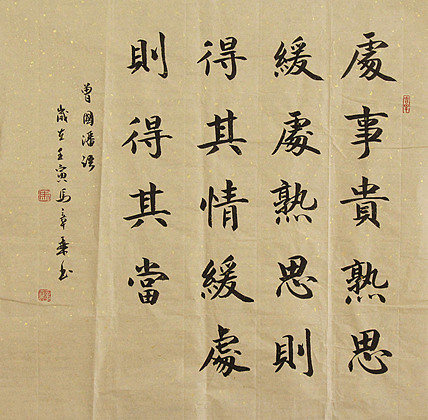 處事貴熟思
緩處熟思則
得其情緩處
則得其當
曾國潘語
歲在壬寅馬章乘书